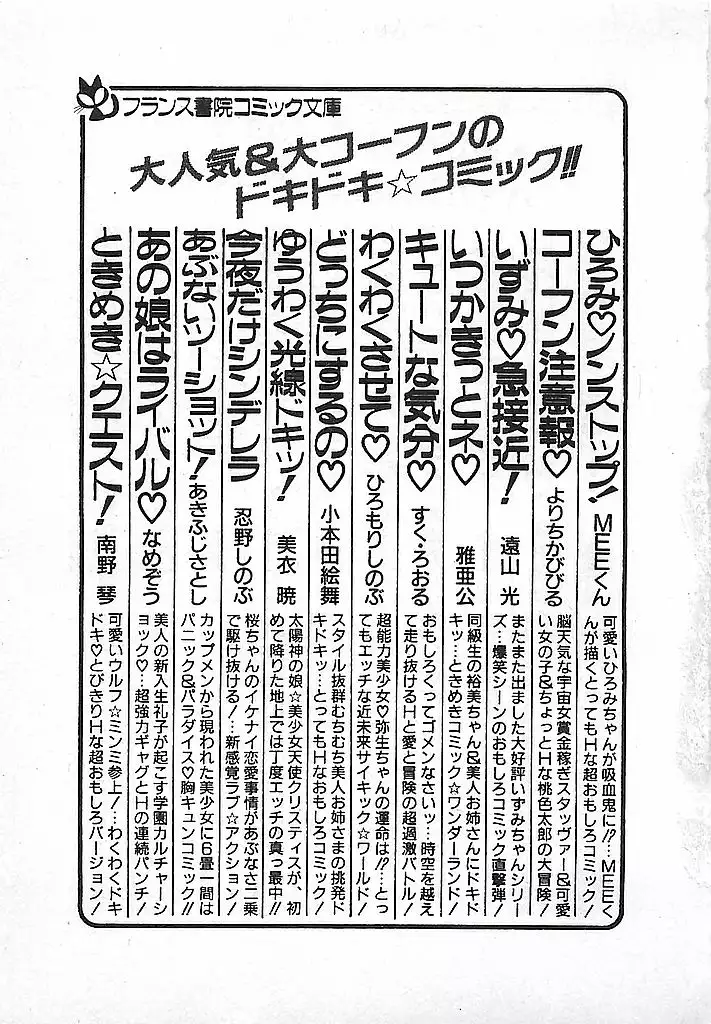 フランス書院コミック文庫
大人気&大コーフンの
ドキドキ☆コミック!!
ひろみ♡ノンストップ! MEEくん
可愛いひろみちゃんが吸血鬼に!?…MEEく
んが描くとってもHな超おもしろコミック!
コーフン注意報♡ よりちかびびる
脳天気な宇宙女賞金稼ぎスタッヴァー&可愛
い女の子&ちょっとHな桃色太郎の大冒険!
いずみ♡急接近! 遠山 光
またまた出ました大好評いずみちゃんシリー
ズ…爆笑シーンのおもしろコミック直撃弾!
いつかきっとネ♡ 雅亜公
同級生の裕美ちゃん&美人お姉さんにドキド
キッ…ときめきコミック☆ワンダーランド!
キュートな気分♡ すぐ・ろおる
おもしろくってゴメンなさいッ…時空を越え
て走り抜けるHと愛と冒険の超過激バトル!
わくわくさせて♡ ひろもりしのぶ
超能力美少女♡弥生ちゃんの運命は!?…とっ
てもエッチな近未来サイキック☆ワールド!
どっちにするの♡ 小本田絵舞
スタイル抜群むちむち美人お姉さまの挑発ド
キドキッ…とってもHなおもしろコミック!
ゆうわく光線ドキッ! 美衣 暁
太陽神の娘☆美少女天使クリスティスが、初
めて降りた地上では丁度エッチの真っ最中!!
今夜だけシンデレラ 忍野しのぶ
桜ちゃんのイケナイ恋愛事情があぶなさ二乗
で駆け抜ける!…新感覚ラブ☆アクション!
あぶないツーショット! あきふじさとし
カップメンから現われた美少女に6畳一間は
パニック&パラダイス♡胸キュンコミック!!
あの娘はライバル♡ なめぞう
美人の新入生礼子が起こす学園カルチャーシ
ョック♡…超強力ギャグとHの連続パンチ!
ときめき☆クエスト! 南野 琴
可愛いウルフ☆ミンミ参上!…わくわくドキ
ドキ♡とびきりHな超おもしろバージョン!